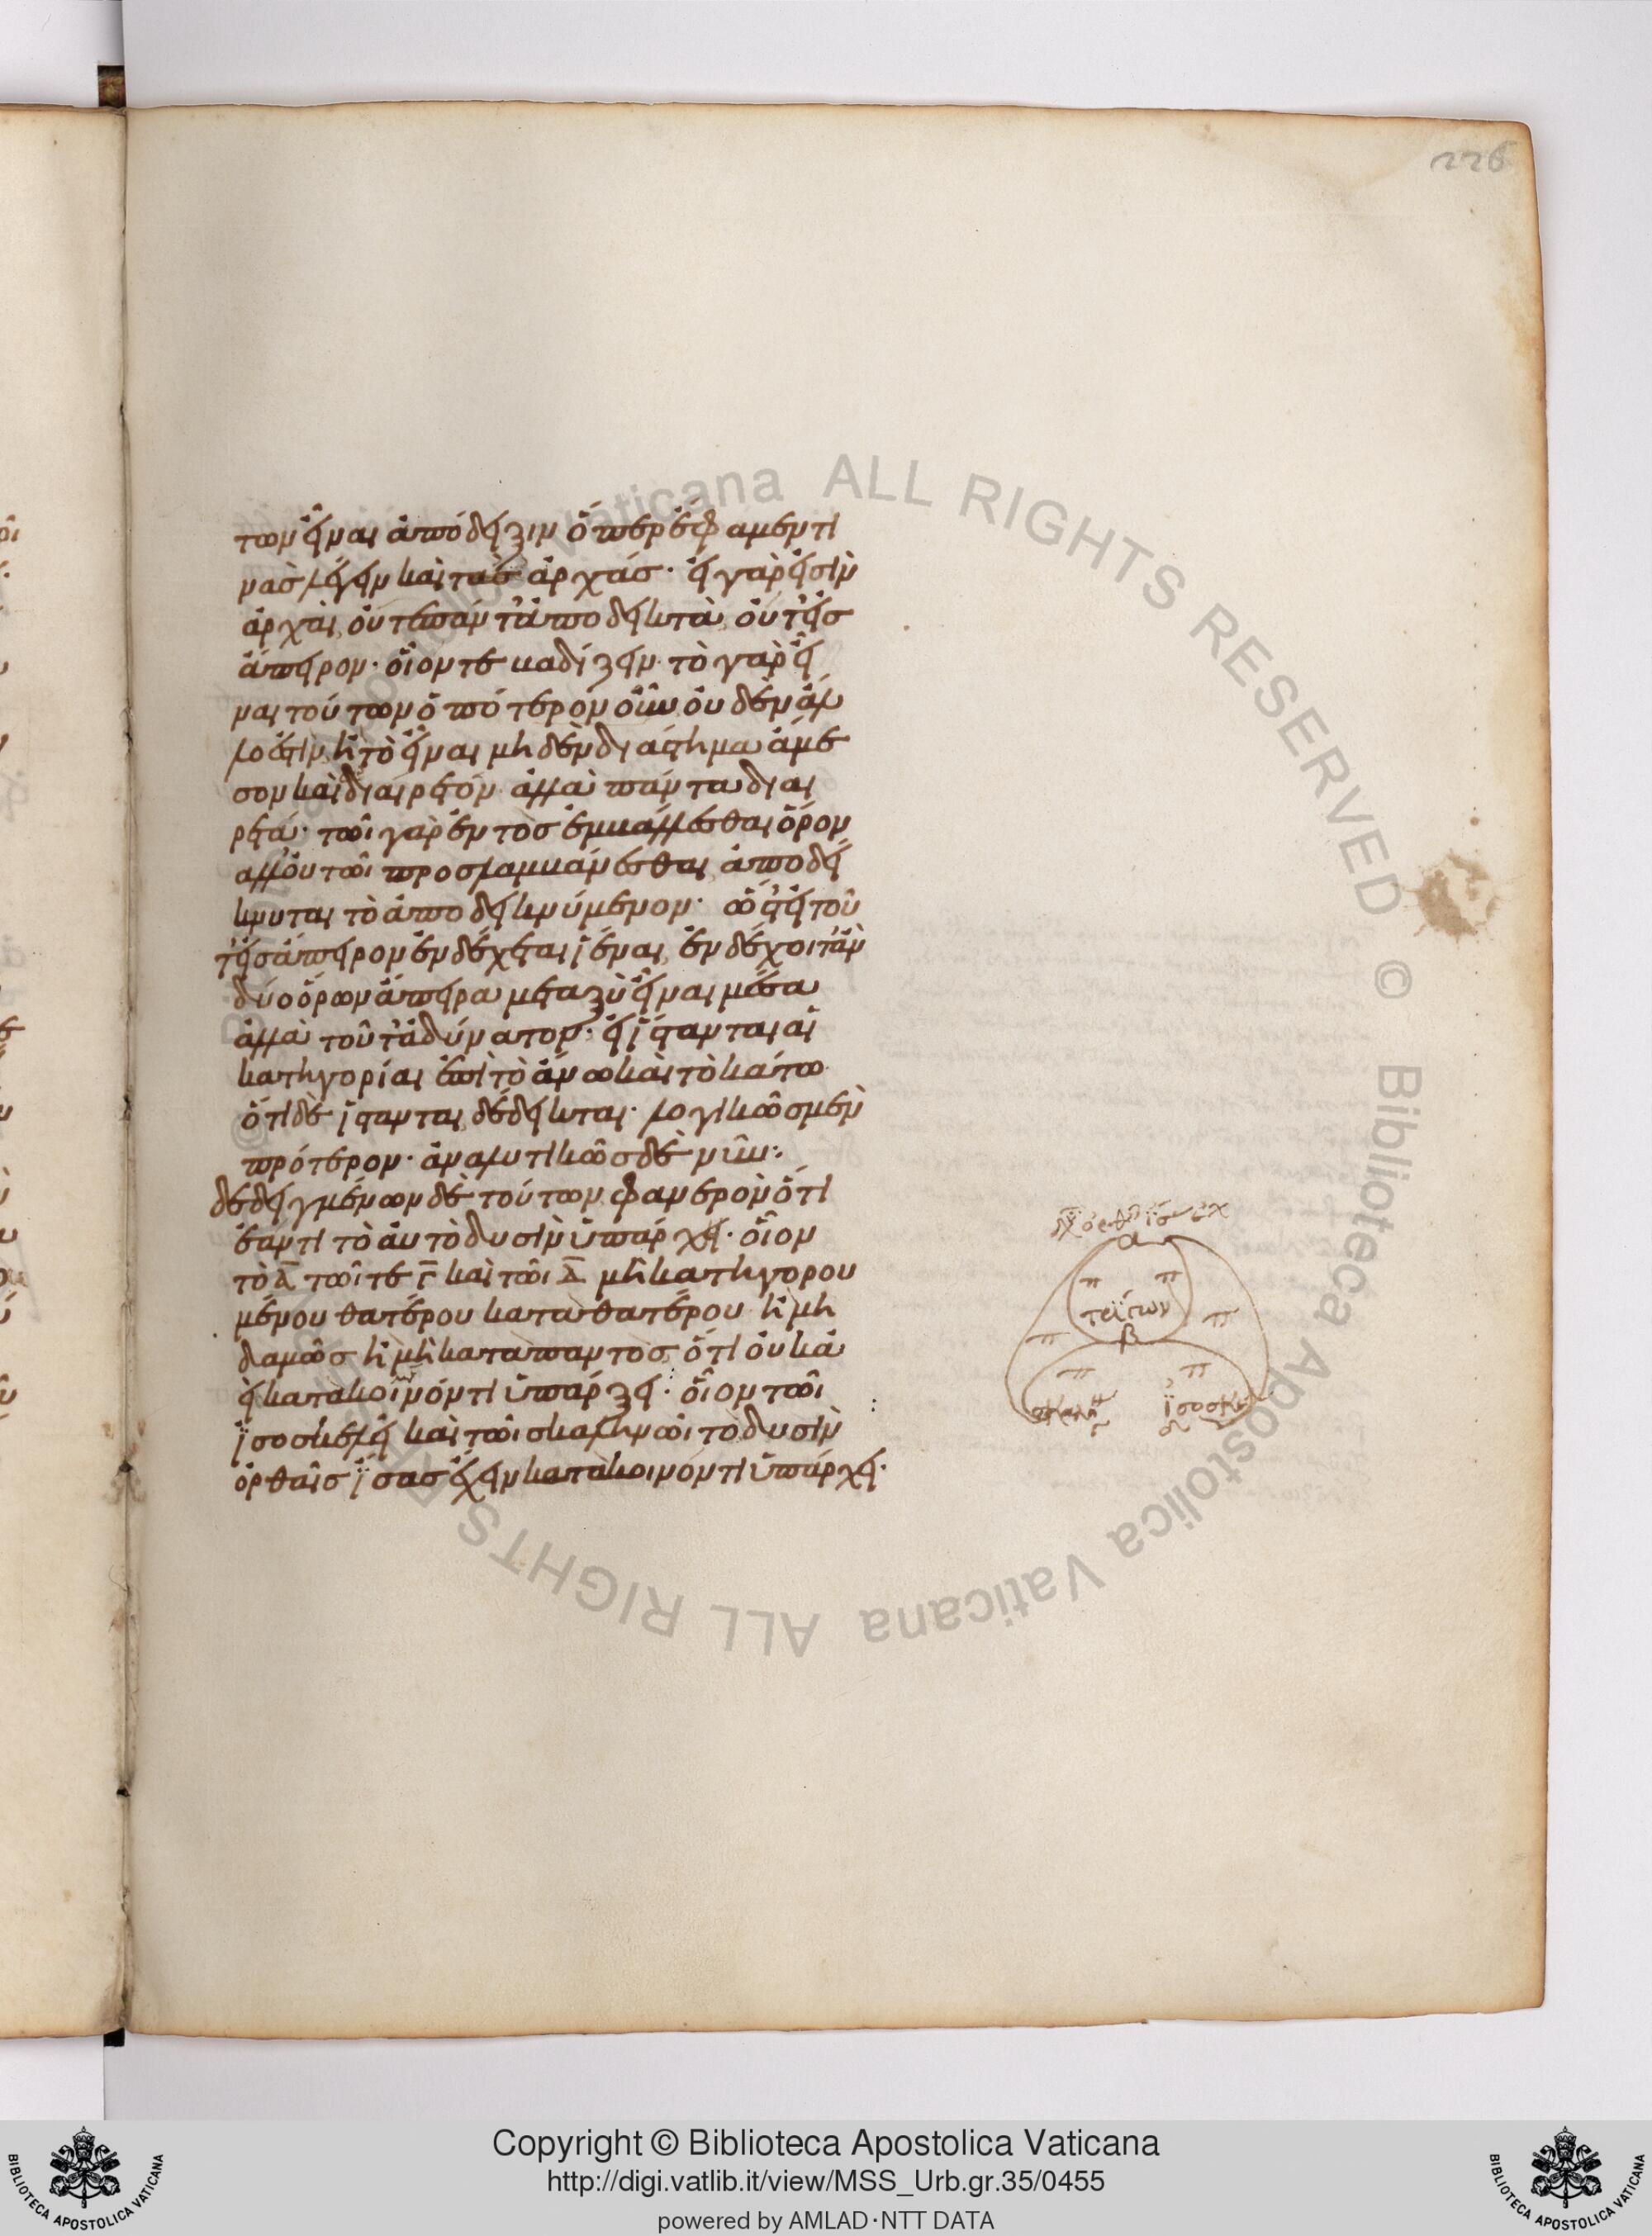 226
των εἶναι ἀπόδειξιν ὅπερ ἔφαμεν τι
νὰσ λέγειν κατὰσ ἀρχάσ· εἰ γὰρ εἰσὶν
ἀρχαὶ, οὔτε πάντ' ἀποδεικτὰ, οὔτ' εἰσ
ἄπειρον· οἷόν τε βαδίζειν· τὸ γὰρ εἶ
ναι τούτων ὁποτερονοῦν οὐδὲν ἄλ
λο ἐστὶν, ἢ τὸ εἶναι μηδὲν διάστημα ἄμε
σον καὶ ἀδιαίρετον· ἀλλὰ πάντα διαι
ρετά· τῶι γὰρ ἐντὸσ ἐμβάλλεσθαι ὅρον
ἀλλ' οὐ τῶι προσλαμβάνεσθαι, ἀποδεί
κνυται τὸ ἀποδεικνύμενον· ὥστ' εἰ τοῦ
τ' εἰσ ἄπειρον ἐνδέχεται ἰέναι, ἐνδέχοιτ' ἂν
δύο ὅρων ἄπειρα μεταξὺ εἶναι μέσα
ἀλλὰ τοῦτ' ἀδύνατον· εἰ ἵστανται αἱ
κατηγορίαι ἐπὶ τὸ ἄνω καὶ τὸ κάτω
ὅτι δὲ ἵστανται, δέδεικται· λογικῶσ μὲν
πρότερον· ἀναλυτικῶσ δὲ νῦν:
δεδειγμένων δὲ τούτων, φανερὸν ὅτι
ἐάν τι τὸ αὐτὸ δυσὶν ὑπάρχει· οἷον
τὸ Α τῶι τε Γ καὶ τῶι Δ μὴ κατηγορου
μένου θατέρου κατὰ θατέρου ἢ μη
δαμῶσ ἢ μὴ κατὰ παντοσ, ὅτι οὐκ ἀ
εὶ κατὰ κοινόν τι ὑπάρξει· οἷον τῶι
ἰσοσκελεῖ καὶ τῶι σκαληνῶι τὸ δυσὶν
ὀρθαῖσ ἴσασ ἔχειν κατὰ κοινόν τι ὑπάρχει·
α
π π
τρίγων
π π
β
π π
Copyright © Biblioteca Apostolica Vaticana
http://digi.vatlib.it/view/MSS_Urb.gr.35/0455
powered by AMLAD·NTT DATA
BIBLIOTECA APOSTOLICA VATICANA
BIBLIOTECA APOSTOLICA VATICANA
© Biblioteca Apostolica Vaticana ALL RIGHTS RESERVED
© Biblioteca Apostolica Vaticana ALL RIGHTS RESERVED